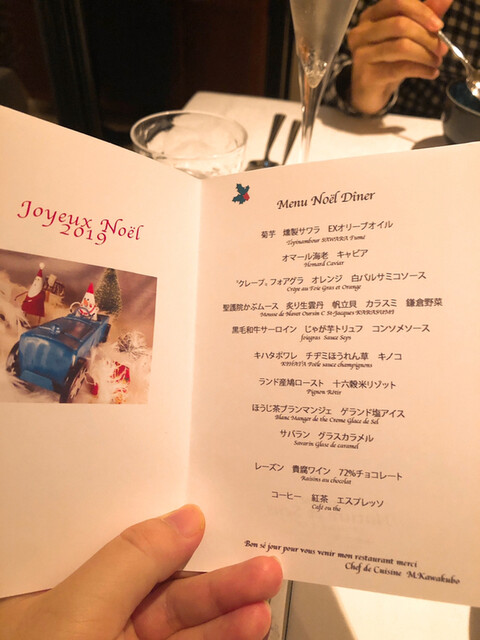 Joyeux Noël
2019
Menu Noël Diner
菊芋　燻製サワラ　EXオリーブオイル
Topinambour SAWARA Fumé
オマール海老　キャビア
Homard Caviar
"クレープ"フォアグラ　オレンジ　白バルサミコソース
Crêpe au Foie Gras et Orange
聖護院かぶムース　炙り生雲丹　帆立貝　カラスミ　鎌倉野菜
Mousse de Navet Oursin C St-Jacques KARASUMI
黒毛和牛サーロイン　じゃが芋トリュフ　コンソメソース
Sauce
キハタポワレ　チヂミほうれん草　キノコ
KIHATA Poêle sauce champignons
ランド産鳩ロースト　十六穀米リゾット
Pigeon Rôtir
ほうじ茶ブランマンジェ　ゲランド塩アイス
Blanc Manger de the Creme Glace de Sel
サバラン　グラスカラメル
Savarin Glase de caramel
レーズン　貴腐ワイン　72%チョコレート
Raisins au chocolat
コーヒー　紅茶　エスプレッソ
Café ou the
Bon sé jour pour vous venir mon restaurant merci
Chef de Cuisine M.Kawakubo